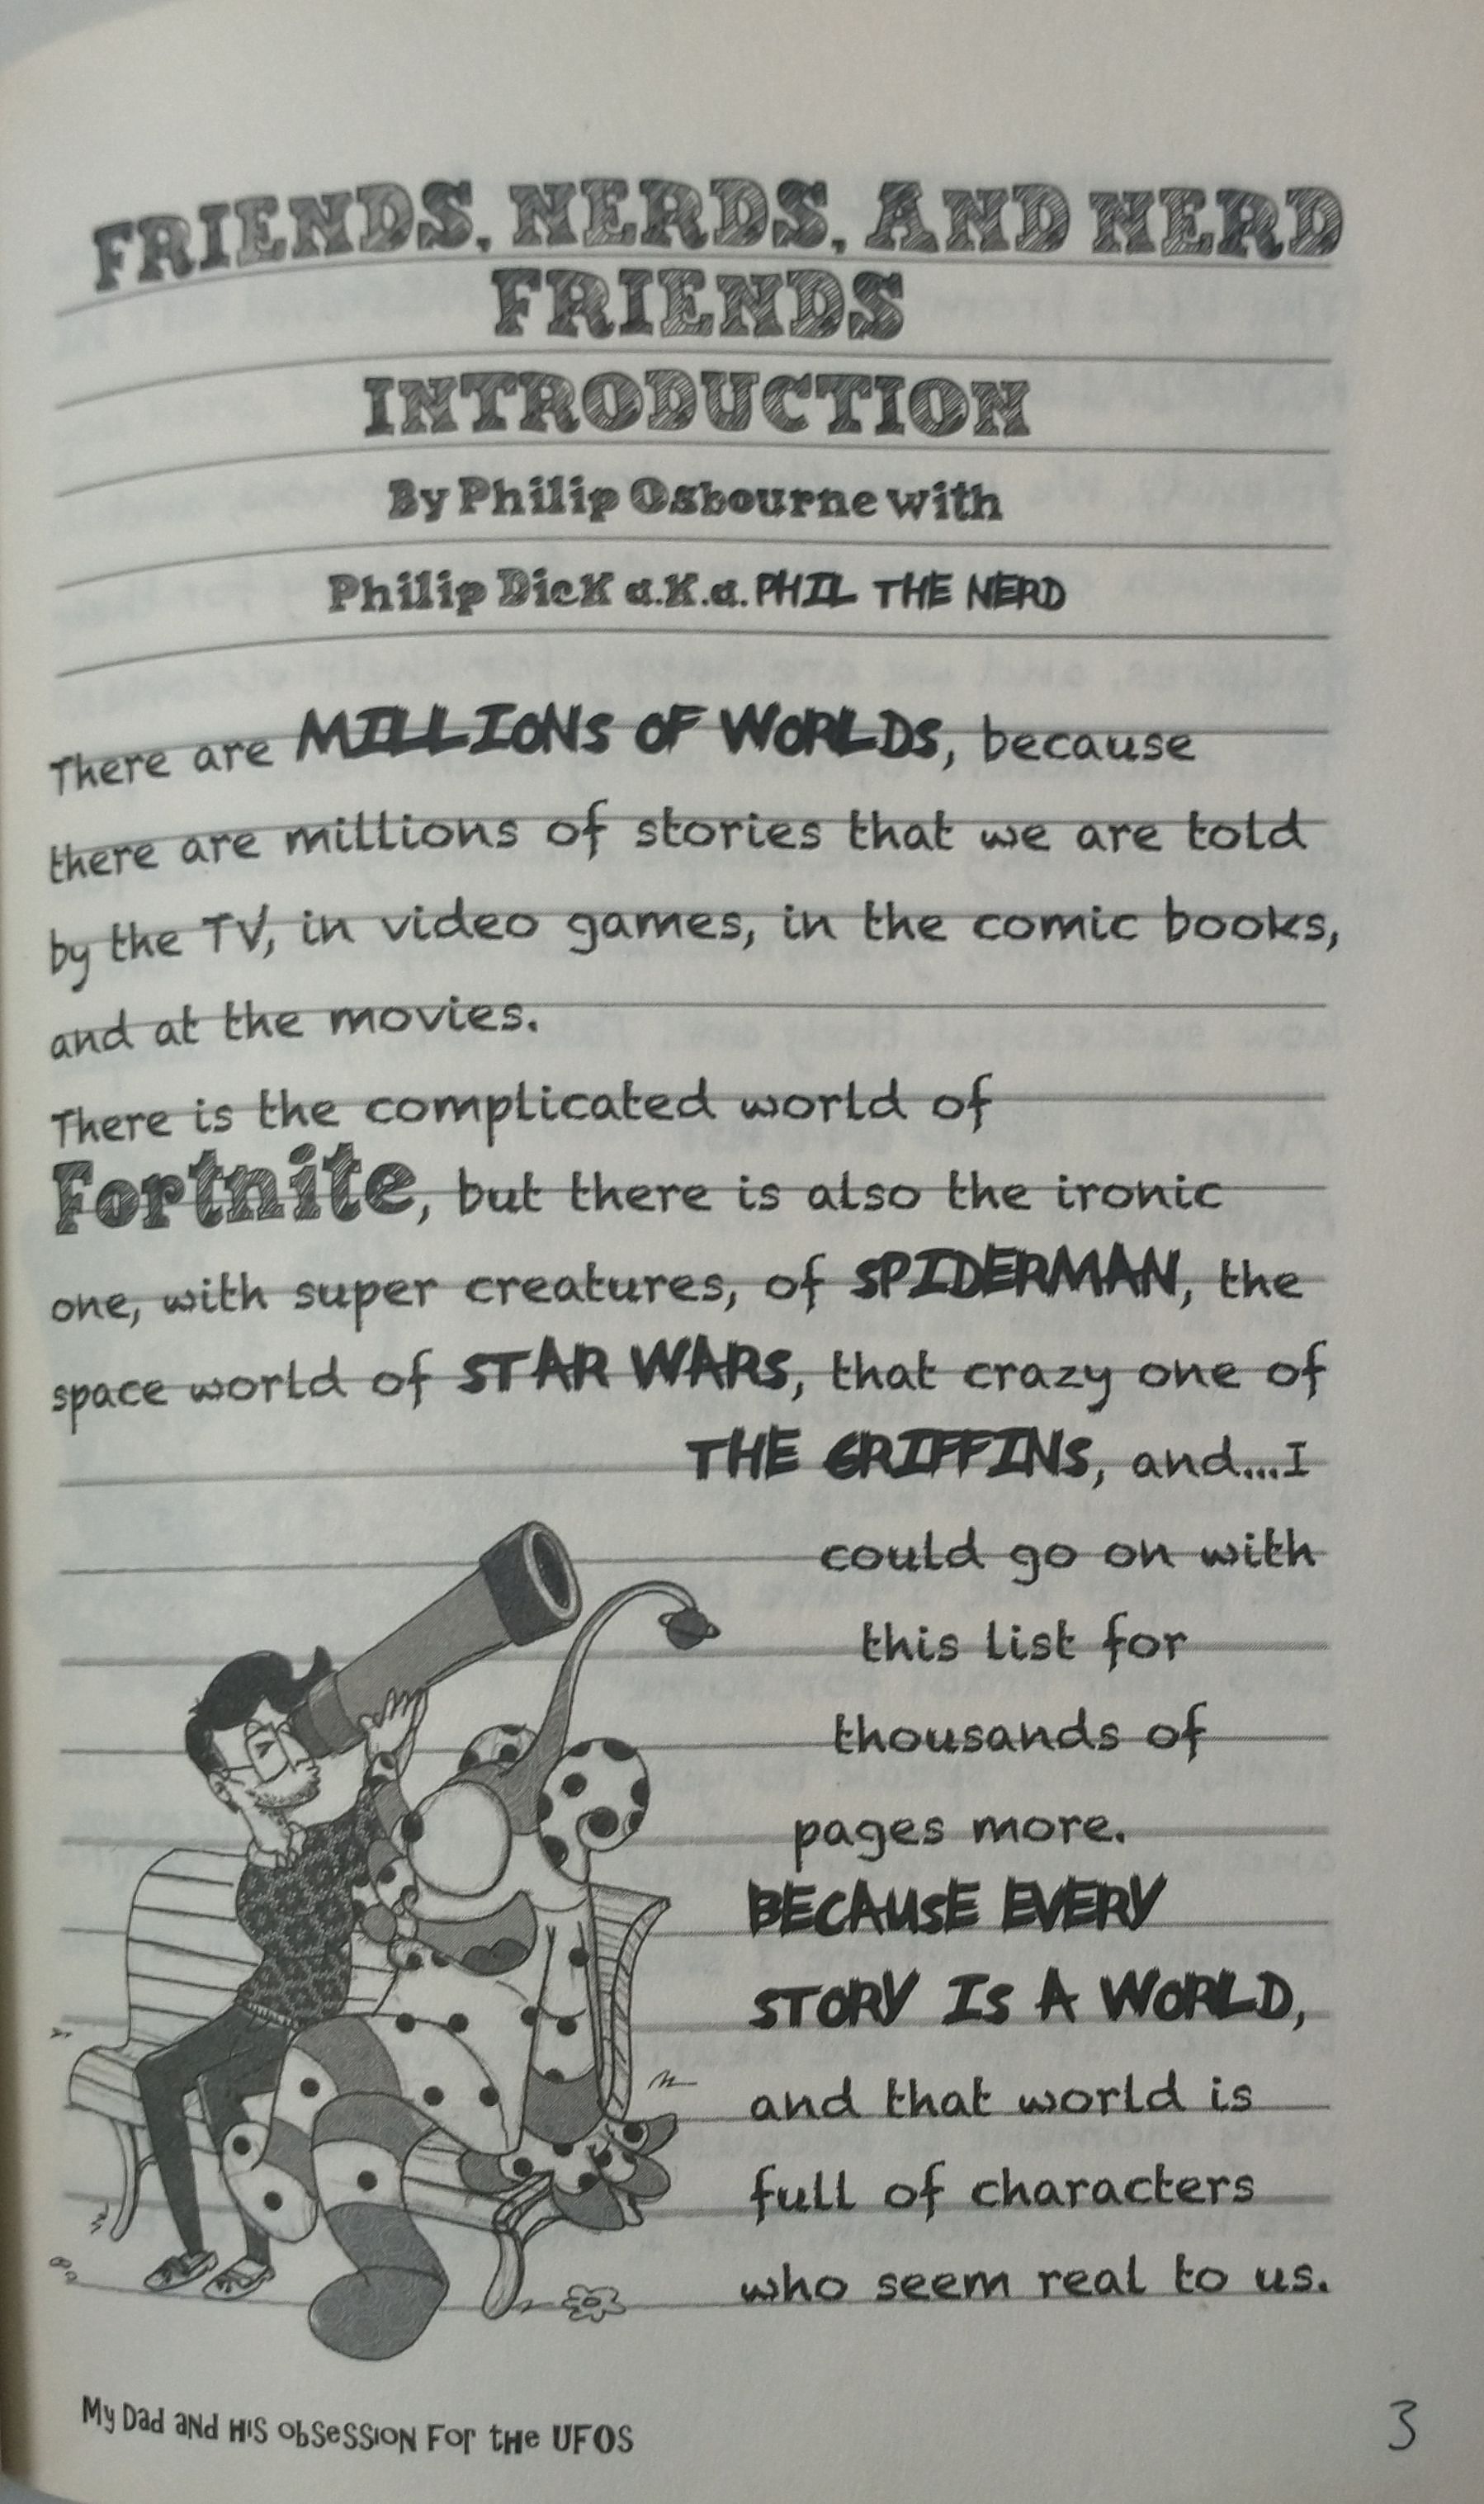 FRIENDS, NERDS, AND NERD
FRIENDS
INTRODUCTION
By Philip Osbourne with
Philip Dick a.k.a. PHIL THE NERD
There are MILLIONS OF WORLDS, because
there are millions of stories that we are told
by the TV, in video games, in the comic books,
and at the movies.
There is the complicated world of
Fortnite, but there is also the ironic
one, with super creatures, of SPIDERMAN, the
space world of STAR WARS, that crazy one of
THE GRIFFINS, and...I
could go on with
this list for
thousands of
pages more.
BECAUSE EVERY
STORY IS A WORLD,
and that world is
full of characters
who seem real to us.
My Dad and His Obsession For the UFOS
3